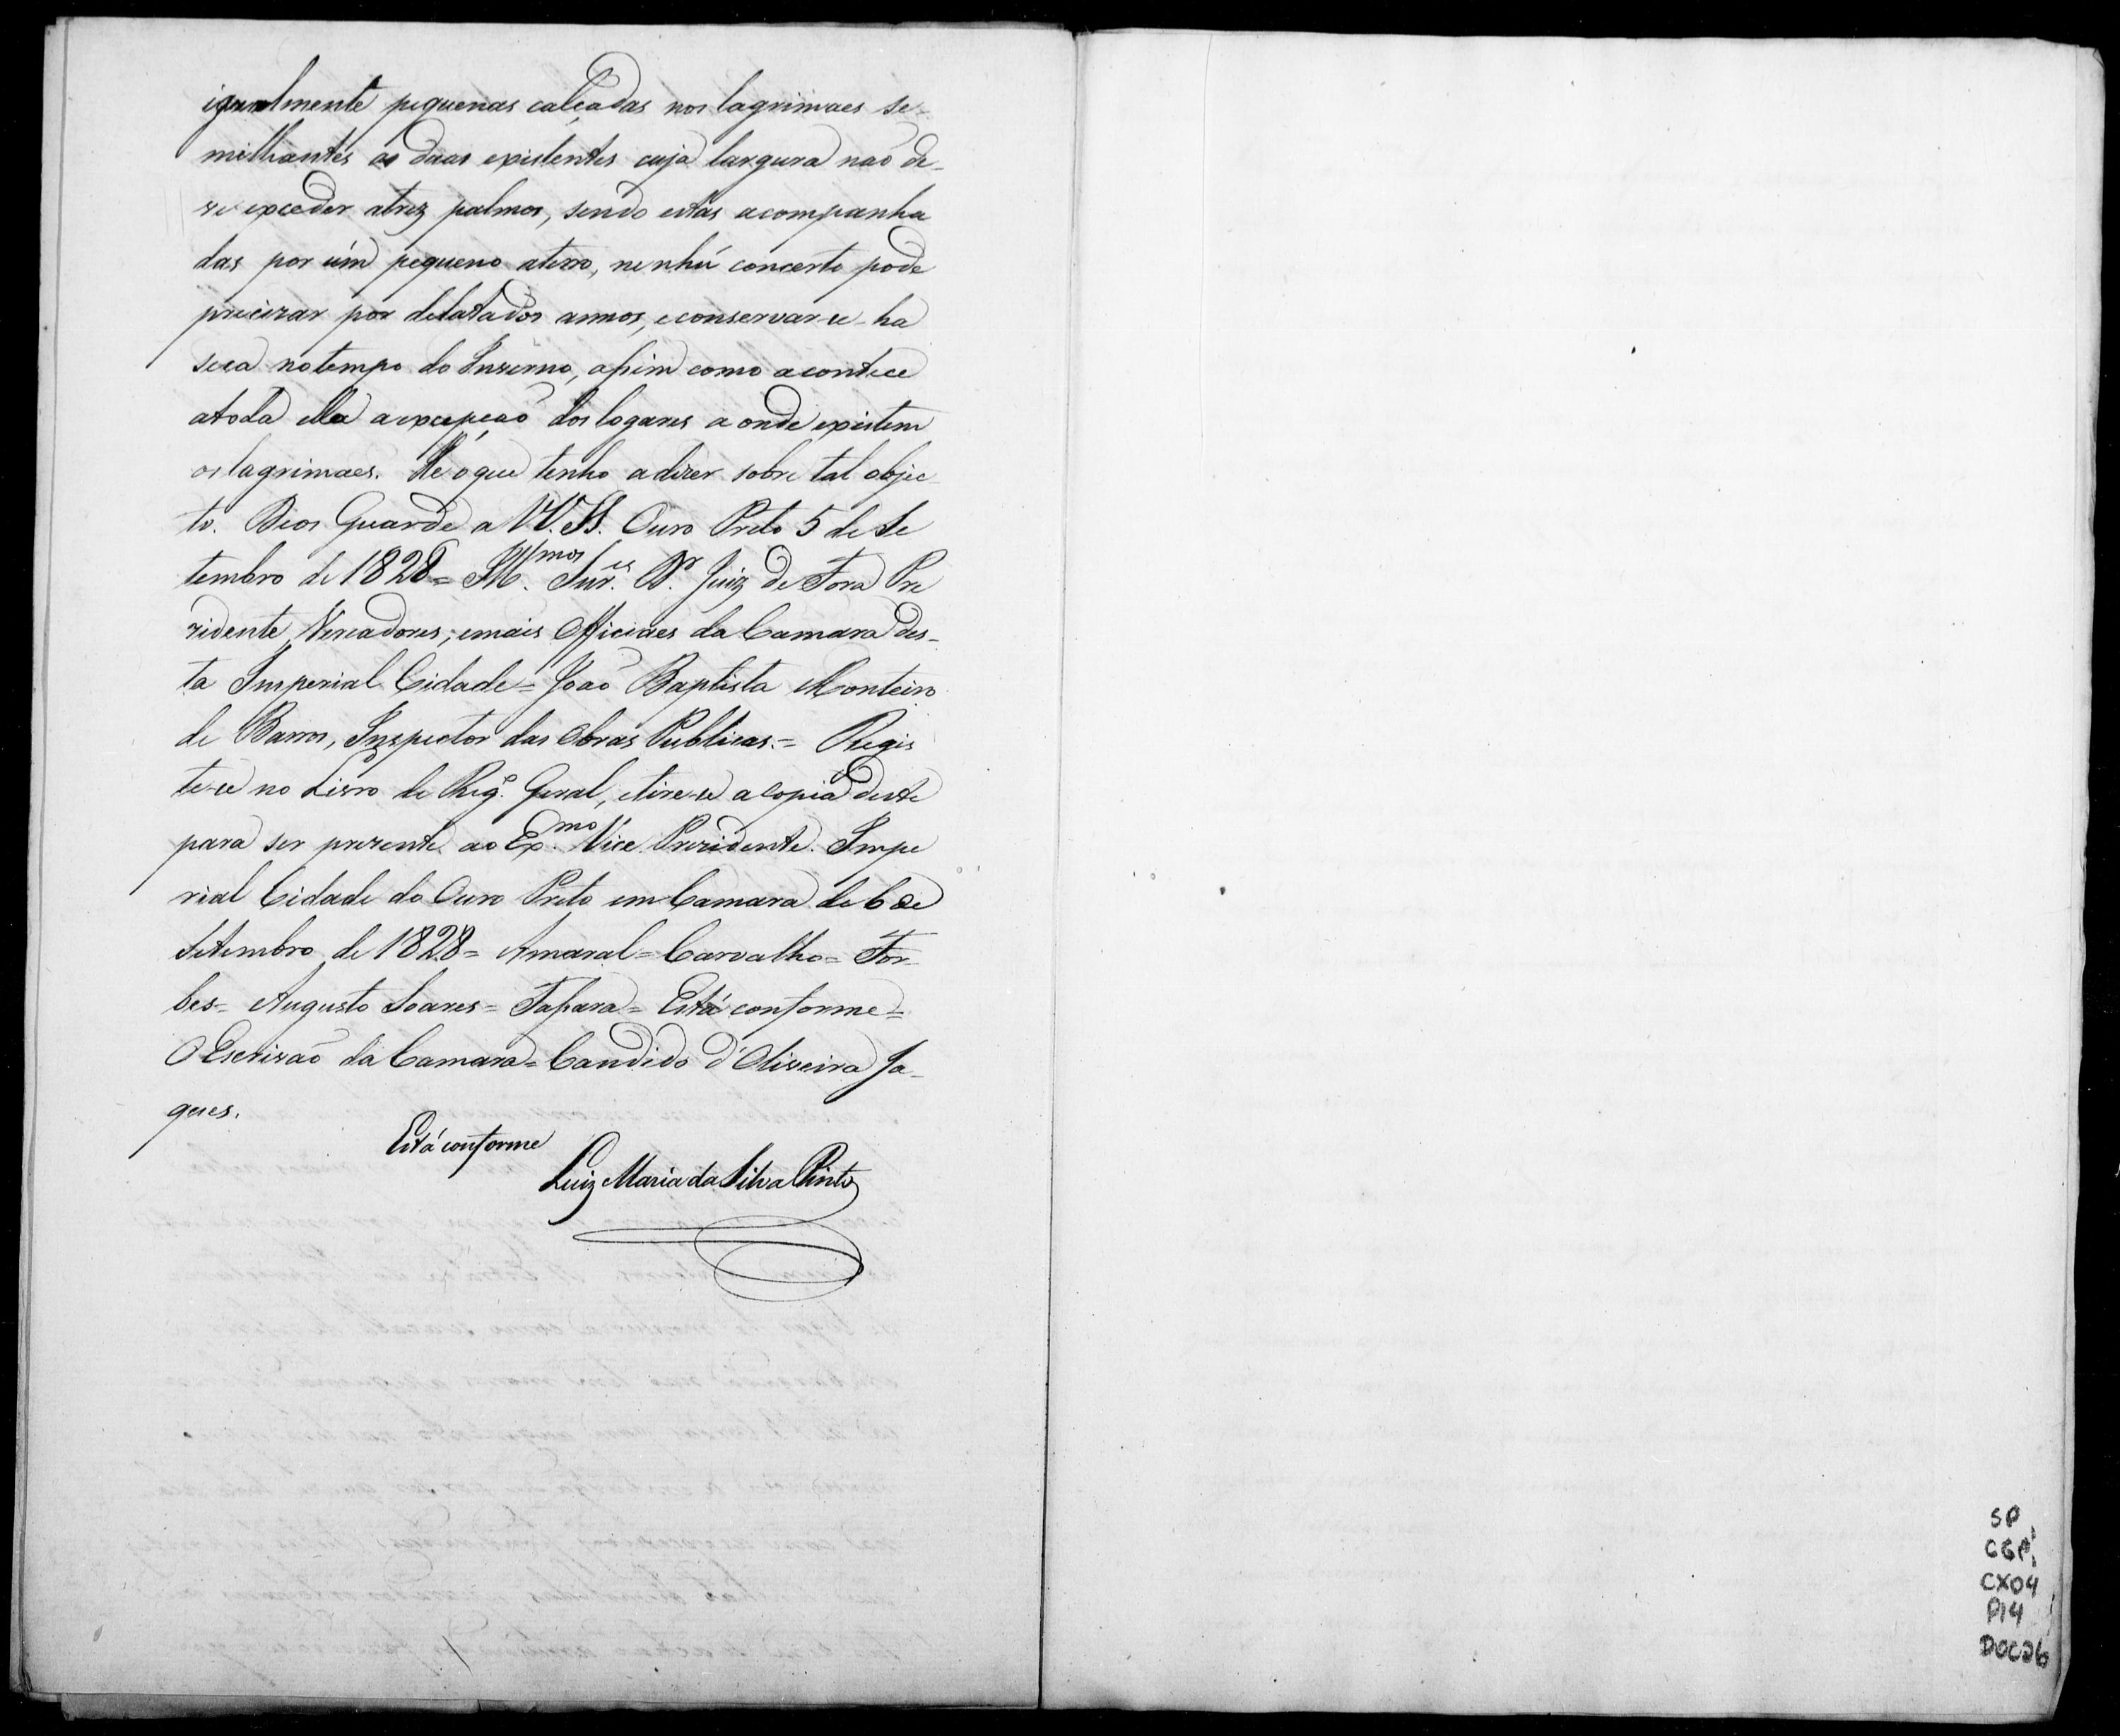 igualmente piquenas calçadas nos lagrimaes se-
milhantes as duas existentes cuja largura naõ de-
ve exceder atrez palmos, sendo estas acompanha
das por úm pequeno aterro, nenhú concerto pode
precizar por delatados annos, econservar-se-ha
seca notempo do Inverno, assim como acontece
atoda ella aexcepçaõ dos logares a onde existem
os lagrimaes. He oque tenho adizer sobre tal objec
to. Deos Guarde a VV. SS. Ouro Preto 5 de Se
tembro de 1828 = Ill.mos Snr.es D.r Juiz de Fora Pre
zidente, Vereadores, emais Officiaes da Camara des-
ta Imperial Cidade = Joaõ Baptista Monteiro
de Barros, Inspector das Obras Publicas. = Regis
te-se no Livro de Reg.o Geral, etire-se acopia deste
para ser prezente ao Ex.mo Vice Prezidente. Impe
rial Cidade do Ouro Preto em Camara de 6 de
Setembro de 1828 = Amaral = Carvalho = For-
bes = Augusto Soares = Tassara = Está conforme =
O Escrivaõ da Camara = Candido d'Oliveira Ja-
ques.
Está conforme
Luiz Maria da Silva Pinto
SP
CGP1
CX04
P14
DOC26